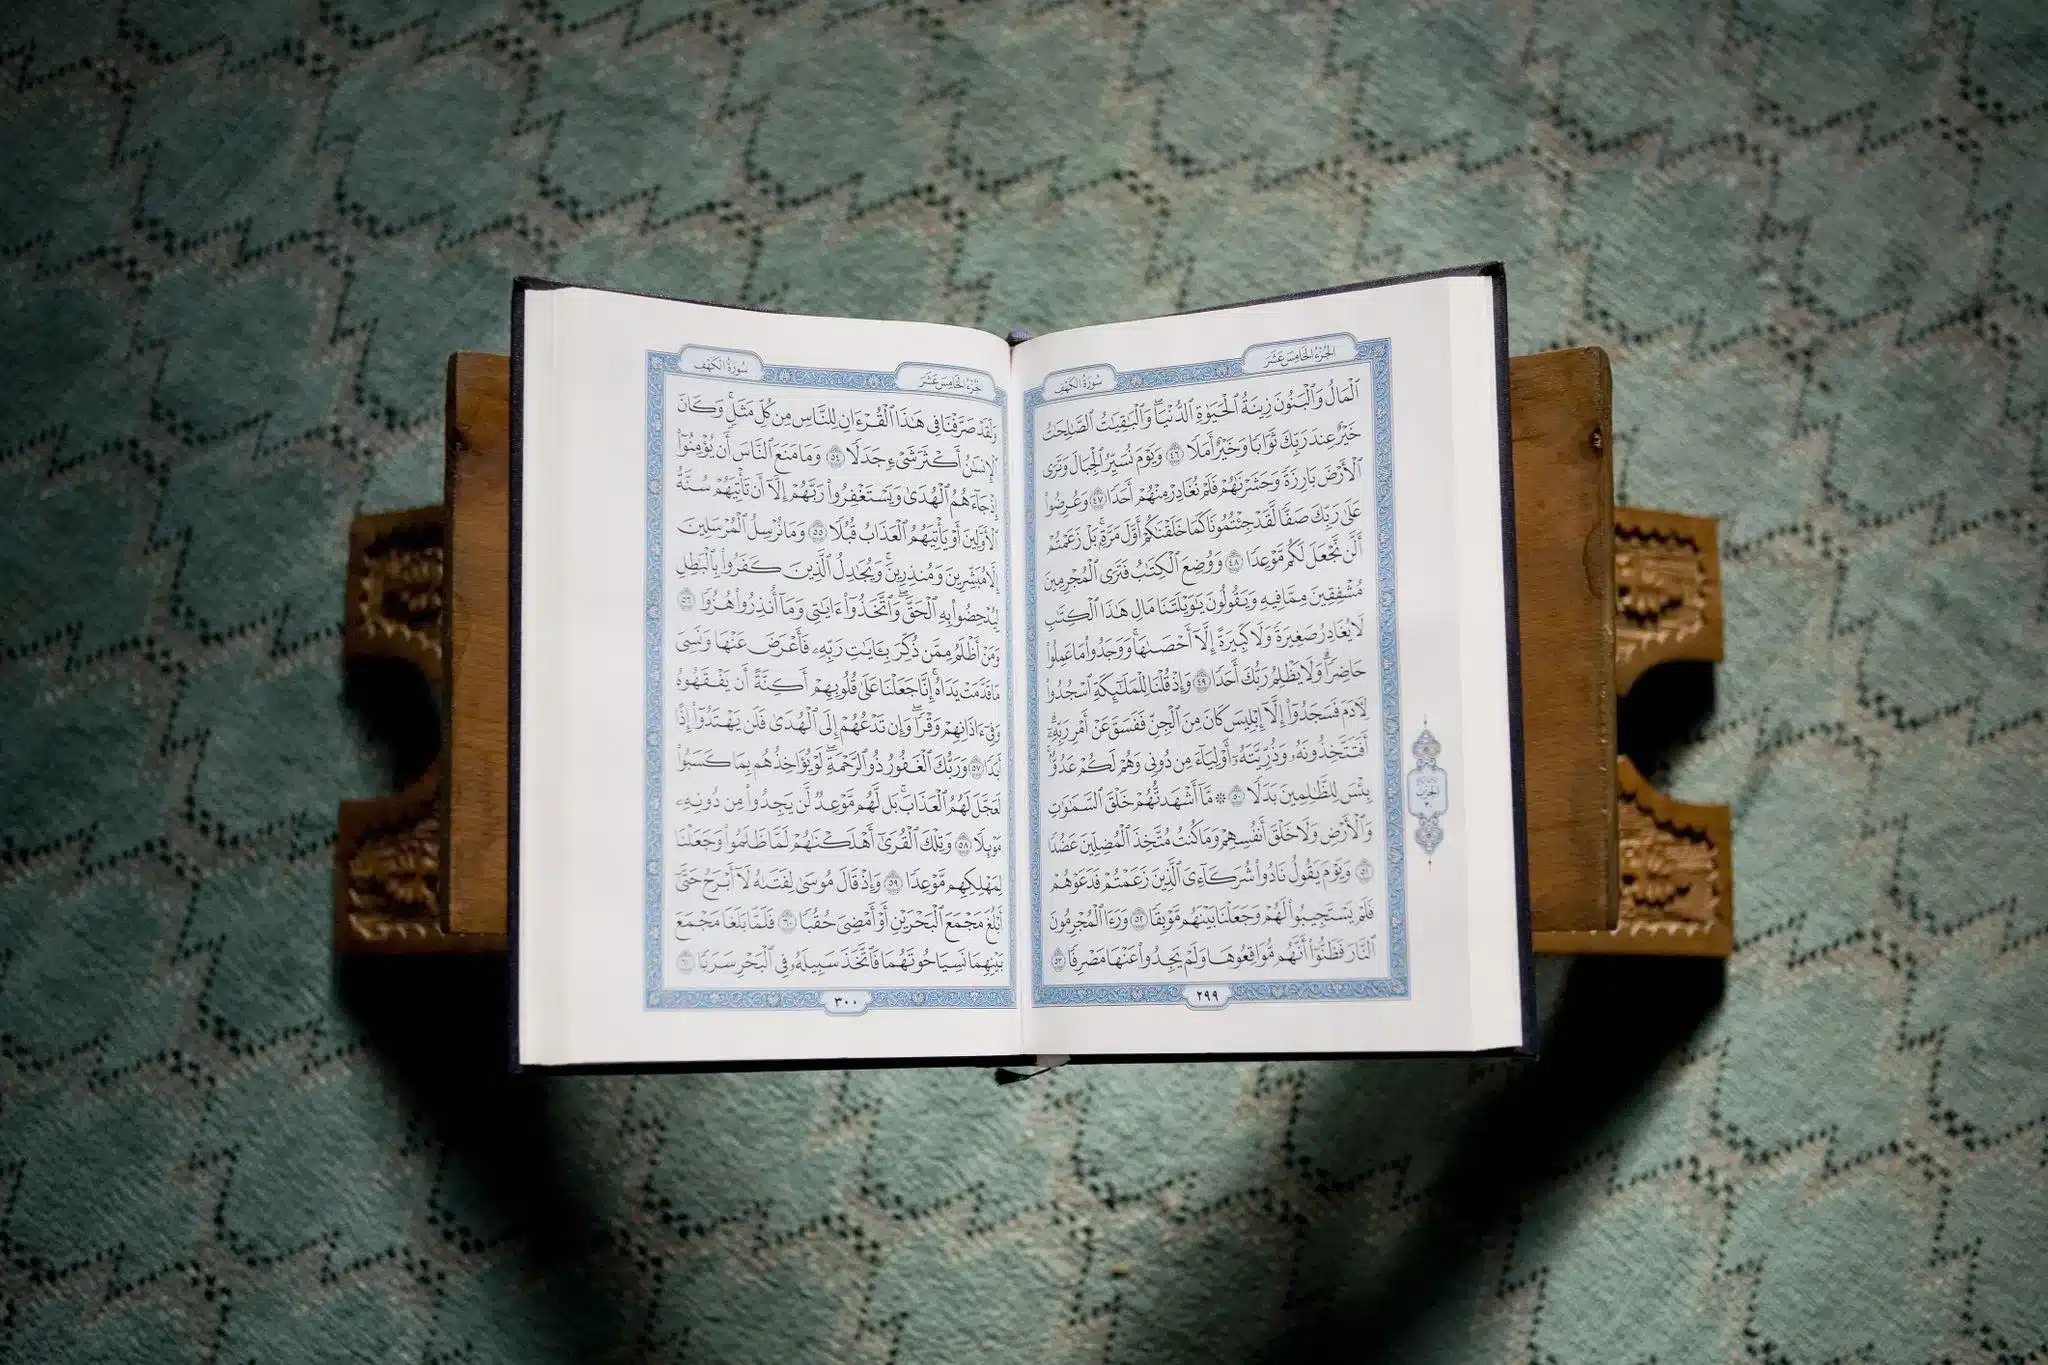 الجزء الخامس عشر
سورة الكهف
ٱلْمَالُ وَٱلْبَنُونَ زِينَةُ ٱلْحَيَوٰةِ ٱلدُّنْيَا ۖ وَٱلْبَـٰقِيَـٰتُ ٱلصَّـٰلِحَـٰتُ
خَيْرٌ عِندَ رَبِّكَ ثَوَابًا وَخَيْرٌ أَمَلًا ٤٦ وَيَوْمَ نُسَيِّرُ ٱلْجِبَالَ وَتَرَى
ٱلْأَرْضَ بَارِزَةً وَحَشَرْنَـٰهُمْ فَلَمْ نُغَادِرْ مِنْهُمْ أَحَدًا ٤٧ وَعُرِضُوا۟
عَلَىٰ رَبِّكَ صَفًّا لَّقَدْ جِئْتُمُونَا كَمَا خَلَقْنَـٰكُمْ أَوَّلَ مَرَّةٍۭ ۚ بَلْ زَعَمْتُمْ
أَلَّن نَّجْعَلَ لَكُم مَّوْعِدًا ٤٨ وَوُضِعَ ٱلْكِتَـٰبُ فَتَرَى ٱلْمُجْرِمِينَ
مُشْفِقِينَ مِمَّا فِيهِ وَيَقُولُونَ يَـٰوَيْلَتَنَا مَالِ هَـٰذَا ٱلْكِتَـٰبِ
لَا يُغَادِرُ صَغِيرَةً وَلَا كَبِيرَةً إِلَّآ أَحْصَىٰهَا ۚ وَوَجَدُوا۟ مَا عَمِلُوا۟
حَاضِرًا ۗ وَلَا يَظْلِمُ رَبُّكَ أَحَدًا ٤٩ وَإِذْ قُلْنَا لِلْمَلَـٰٓئِكَةِ ٱسْجُدُوا۟
لِـَٔادَمَ فَسَجَدُوٓا۟ إِلَّآ إِبْلِيسَ كَانَ مِنَ ٱلْجِنِّ فَفَسَقَ عَنْ أَمْرِ رَبِّهِۦٓ ۗ
أَفَتَتَّخِذُونَهُۥ وَذُرِّيَّتَهُۥٓ أَوْلِيَآءَ مِن دُونِى وَهُمْ لَكُمْ عَدُوٌّۢ ۚ
بِئْسَ لِلظَّـٰلِمِينَ بَدَلًا ٥٠ ۞ مَّآ أَشْهَدتُّهُمْ خَلْقَ ٱلسَّمَـٰوَٰتِ
وَٱلْأَرْضِ وَلَا خَلْقَ أَنفُسِهِمْ وَمَا كُنتُ مُتَّخِذَ ٱلْمُضِلِّينَ عَضُدًا
٥١ وَيَوْمَ يَقُولُ نَادُوا۟ شُرَكَآءِىَ ٱلَّذِينَ زَعَمْتُمْ فَدَعَوْهُمْ
فَلَمْ يَسْتَجِيبُوا۟ لَهُمْ وَجَعَلْنَا بَيْنَهُم مَّوْبِقًا ٥٢ وَرَءَا ٱلْمُجْرِمُونَ
ٱلنَّارَ فَظَنُّوٓا۟ أَنَّهُم مُّوَاقِعُوهَا وَلَمْ يَجِدُوا۟ عَنْهَا مَصْرِفًا ٥٣
٢٩٩
الجزء الخامس عشر
سورة الكهف
وَلَقَدْ صَرَّفْنَا فِى هَـٰذَا ٱلْقُرْءَانِ لِلنَّاسِ مِن كُلِّ مَثَلٍ ۚ وَكَانَ
ٱلْإِنسَـٰنُ أَكْثَرَ شَىْءٍ جَدَلًا ٥٤ وَمَا مَنَعَ ٱلنَّاسَ أَن يُؤْمِنُوٓا۟
إِذْ جَآءَهُمُ ٱلْهُدَىٰ وَيَسْتَغْفِرُوا۟ رَبَّهُمْ إِلَّآ أَن تَأْتِيَهُمْ سُنَّةُ
ٱلْأَوَّلِينَ أَوْ يَأْتِيَهُمُ ٱلْعَذَابُ قُبُلًا ٥٥ وَمَا نُرْسِلُ ٱلْمُرْسَلِينَ
إِلَّا مُبَشِّرِينَ وَمُنذِرِينَ ۚ وَيُجَـٰدِلُ ٱلَّذِينَ كَفَرُوا۟ بِٱلْبَـٰطِلِ
لِيُدْحِضُوا۟ بِهِ ٱلْحَقَّ ۖ وَٱتَّخَذُوٓا۟ ءَايَـٰتِى وَمَآ أُنذِرُوا۟ هُزُوًا ٥٦
وَمَنْ أَظْلَمُ مِمَّن ذُكِّرَ بِـَٔايَـٰتِ رَبِّهِۦ فَأَعْرَضَ عَنْهَا وَنَسِىَ
مَا قَدَّمَتْ يَدَاهُ ۚ إِنَّا جَعَلْنَا عَلَىٰ قُلُوبِهِمْ أَكِنَّةً أَن يَفْقَهُوهُ
وَفِىٓ ءَاذَانِهِمْ وَقْرًا ۖ وَإِن تَدْعُهُمْ إِلَى ٱلْهُدَىٰ فَلَن يَهْتَدُوٓا۟ إِذًا
أَبَدًا ٥٧ وَرَبُّكَ ٱلْغَفُورُ ذُو ٱلرَّحْمَةِ ۖ لَوْ يُؤَاخِذُهُم بِمَا كَسَبُوا۟
لَعَجَّلَ لَهُمُ ٱلْعَذَابَ ۚ بَل لَّهُم مَّوْعِدٌ لَّن يَجِدُوا۟ مِن دُونِهِۦ
مَوْئِلًا ٥٨ وَتِلْكَ ٱلْقُرَىٰٓ أَهْلَكْنَـٰهُمْ لَمَّا ظَلَمُوا۟ وَجَعَلْنَا
لِمَهْلِكِهِم مَّوْعِدًا ٥٩ وَإِذْ قَالَ مُوسَىٰ لِفَتَىٰهُ لَآ أَبْرَحُ حَتَّىٰٓ
أَبْلُغَ مَجْمَعَ ٱلْبَحْرَيْنِ أَوْ أَمْضِىَ حُقُبًا ٦٠ فَلَمَّا بَلَغَا مَجْمَعَ
بَيْنِهِمَا نَسِيَا حُوتَهُمَا فَٱتَّخَذَ سَبِيلَهُۥ فِى ٱلْبَحْرِ سَرَبًا ٦١
٣٠٠